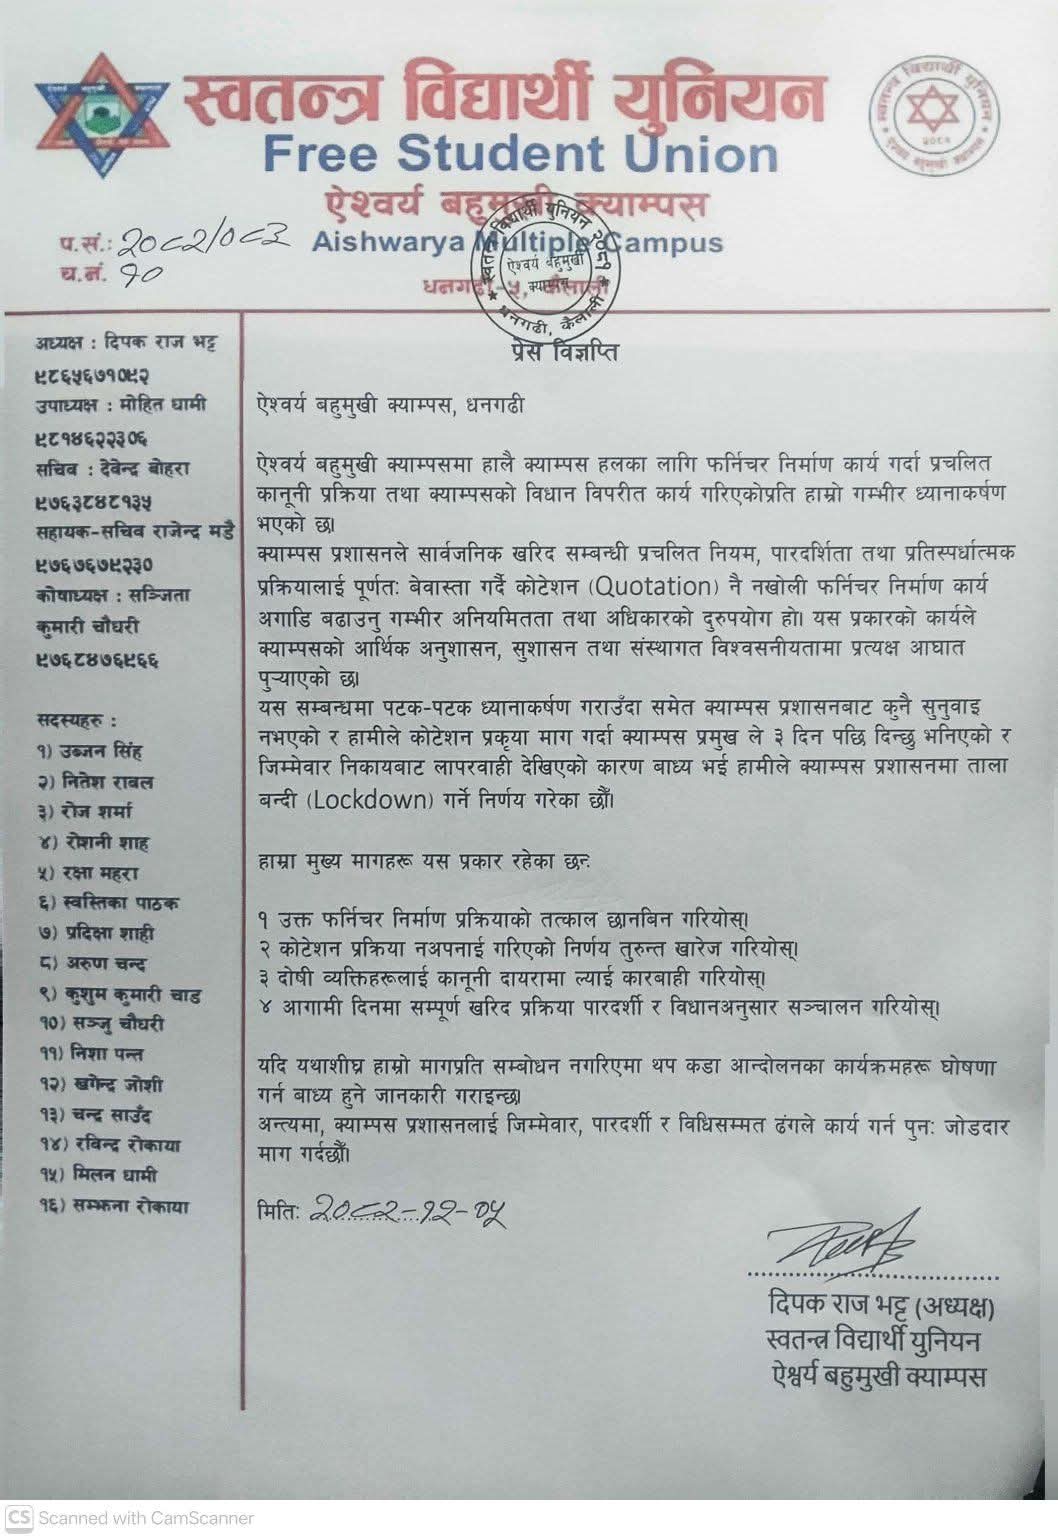 स्वतन्त्र विद्यार्थी युनियन
Free Student Union
ऐश्वर्य बहुमुखी क्याम्पस
Aishwarya Multiple Campus
धनगढी-५, कैलाली
प.सं.: २०८२/०८३
च.नं. १०
स्वतन्त्र विद्यार्थी युनियन २०८१
ऐश्वर्य बहुमुखी
क्याम्पस
धनगढी, कैलाली
स्वतन्त्र विद्यार्थी युनियन
२०८१
ऐश्वर्य बहुमुखी क्याम्पस
अध्यक्ष : दिपक राज भट्ट
९८६५६७१०९२
उपाध्यक्ष : मोहित धामी
९८१४६२२३०६
सचिव : देवेन्द्र बोहरा
९७६३८४८१३५
सहायक-सचिव राजेन्द्र मडै
९७६७६७९२३०
कोषाध्यक्ष : सञ्जिता
कुमारी चौधरी
९७६८४७६९६६
सदस्यहरु :
१) उब्जन सिंह
२) नितेश रावल
३) रोज शर्मा
४) रोशनी शाह
५) रक्षा महरा
६) स्वस्तिका पाठक
७) प्रदिक्षा शाही
८) अरुण चन्द
९) कुशुम कुमारी चाड
१०) सञ्जु चौधरी
११) निशा पन्त
१२) खगेन्द्र जोशी
१३) चन्द्र साउँद
१४) रविन्द्र रोकाया
१५) मिलन धामी
१६) सम्झना रोकाया
प्रेस विज्ञप्ति
ऐश्वर्य बहुमुखी क्याम्पस, धनगढी
ऐश्वर्य बहुमुखी क्याम्पसमा हालै क्याम्पस हलका लागि फर्निचर निर्माण कार्य गर्दा प्रचलित
कानूनी प्रक्रिया तथा क्याम्पसको विधान विपरीत कार्य गरिएकोप्रति हाम्रो गम्भीर ध्यानाकर्षण
भएको छ।
क्याम्पस प्रशासनले सार्वजनिक खरिद सम्बन्धी प्रचलित नियम, पारदर्शिता तथा प्रतिस्पर्धात्मक
प्रक्रियालाई पूर्णतः बेवास्ता गर्दै कोटेशन (Quotation) नै नखोली फर्निचर निर्माण कार्य
अगाडि बढाउनु गम्भीर अनियमितता तथा अधिकारको दुरुपयोग हो। यस प्रकारको कार्यले
क्याम्पसको आर्थिक अनुशासन, सुशासन तथा संस्थागत विश्वसनीयतामा प्रत्यक्ष आघात
पुर्‍याएको छ।
यस सम्बन्धमा पटक-पटक ध्यानाकर्षण गराउँदा समेत क्याम्पस प्रशासनबाट कुनै सुनुवाइ
नभएको र हामीले कोटेशन प्रकृया माग गर्दा क्याम्पस प्रमुख ले ३ दिन पछि दिन्छु भनिएको र
जिम्मेवार निकायबाट लापरवाही देखिएको कारण बाध्य भई हामीले क्याम्पस प्रशासनमा ताला
बन्दी (Lockdown) गर्ने निर्णय गरेका छौँ।
हाम्रा मुख्य मागहरू यस प्रकार रहेका छन्
१ उक्त फर्निचर निर्माण प्रक्रियाको तत्काल छानबिन गरियोस्।
२ कोटेशन प्रक्रिया नअपनाई गरिएको निर्णय तुरुन्त खारेज गरियोस्।
३ दोषी व्यक्तिहरूलाई कानूनी दायरामा ल्याई कारबाही गरियोस्।
४ आगामी दिनमा सम्पूर्ण खरिद प्रक्रिया पारदर्शी र विधानअनुसार सञ्चालन गरियोस्।
यदि यथाशीघ्र हाम्रो मागप्रति सम्बोधन नगरिएमा थप कडा आन्दोलनका कार्यक्रमहरू घोषणा
गर्न बाध्य हुने जानकारी गराइन्छ।
अन्त्यमा, क्याम्पस प्रशासनलाई जिम्मेवार, पारदर्शी र विधिसम्मत ढंगले कार्य गर्न पुनः जोडदार
माग गर्दछौँ।
मितिः २०८२-१२-०५
दिपक राज भट्ट (अध्यक्ष)
स्वतन्त्र विद्यार्थी युनियन
ऐश्वर्य बहुमुखी क्याम्पस
CS Scanned with CamScanner